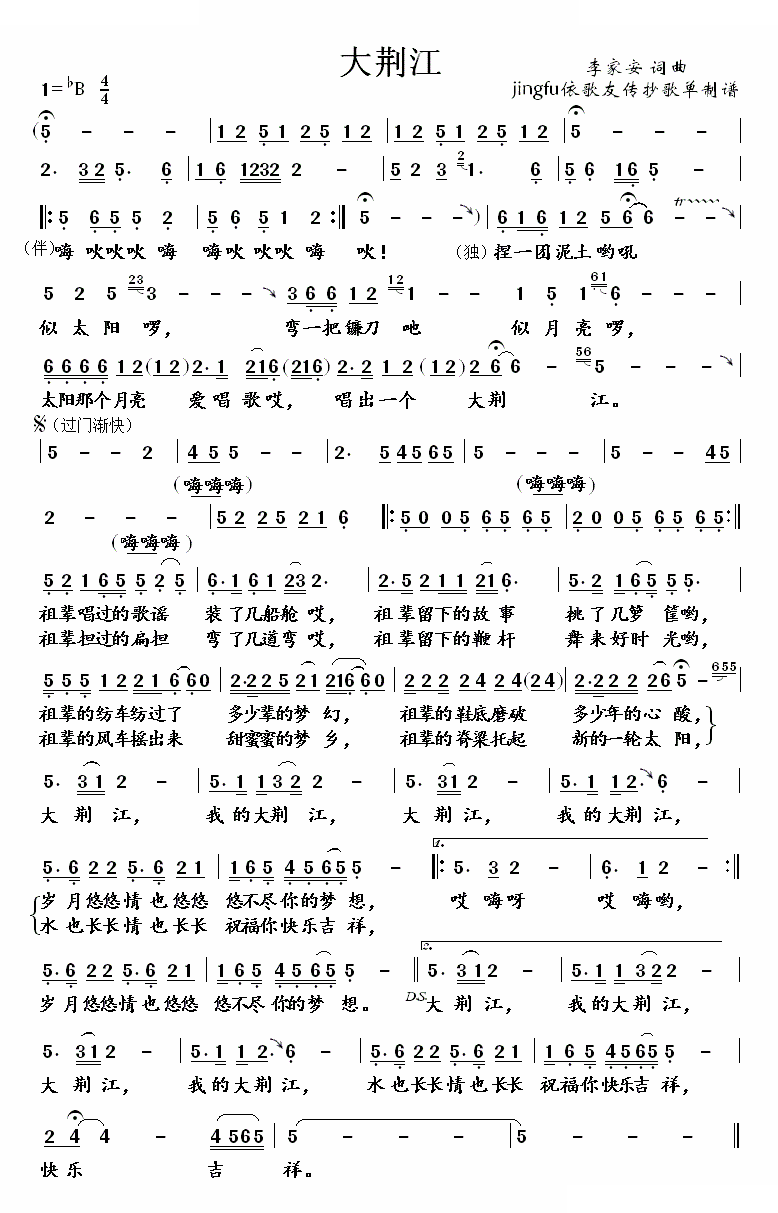 大荆江
1=♭B 4/4
李家安 词曲
jingfu依歌友传抄歌单制谱
(5 - - - | 1 2 5 1 2 5 1 2 | 1 2 5 1 2 5 1 2 | 5 - - - |
2· 3 2 5· 6 | 1 6 1232 2 - | 5 2 3 2 1· 6 | 5 6 1 6 5 - |
‖: 5 6 5 5 2 | 5 6 5 1 2 :‖ 5 - - - ) | 6 1 6 1 2 5 6 6 - - |
(伴)嗨 吙吙吙 嗨 嗨吙 吙吙 嗨 吙! (独) 捏一团泥土哟吼
5 2 5 23 3 - - - 3 6 6 1 2 12 1 - - 1 5 1 61 6 - - - |
似 太 阳 啰, 弯一把镰刀 吔 似 月 亮 啰,
6 6 6 6 1 2 (1 2) 2· 1 216 (216) 2· 2 1 2 (1 2) 2 6 6 - 56 5 - - - |
太阳那个月亮 爱 唱 歌 哎, 唱 出一个 大 荆 江。
(过门渐快)
| 5 - - 2 | 4 5 5 - - | 2· 5 4565 | 5 - - - | 5 - - 4 5 |
(嗨嗨嗨) (嗨嗨嗨)
2 - - - | 5 2 2 5 2 1 6 ‖: 5 0 0 5 6 5 6 5 | 2 0 0 5 6 5 6 5 :‖
(嗨嗨嗨)
5 2 1 6 5 5 2 5 | 6· 1 6 1 2 3 2· | 2· 5 2 1 1 2 1 6· | 5· 2 1 6 5 5 5· |
祖辈唱过的歌谣 装了几船舱 哎, 祖辈留下的故 事 挑 了 几 箩 筐哟,
祖辈担过的扁担 弯了几道弯 哎, 祖辈留下的鞭 杆 舞 来 好 时 光哟,
5 5 5 1 2 2 1 6 6 0 | 2·2 2 5 2 1 2 1 6 6 0 | 2 2 2 2 4 2 4 (2 4) | 2·2 2 2 2 6 5 - 655 |
祖辈的纺车纺过了 多少辈的梦 幻, 祖辈的鞋底磨破 多少年的心 酸,
祖辈的风车摇出来 甜蜜蜜的梦 乡, 祖辈的脊梁托起 新的一轮太 阳,
5· 3 1 2 - | 5· 1 1 3 2 2 - | 5· 3 1 2 - | 5· 1 1 2· 6 |
大 荆 江, 我 的 大荆 江, 大 荆 江, 我 的 大荆江,
5· 6 2 2 5· 6 2 1 | 1 6 5 4 5 6 5 5 - ‖: 1. 5· 3 2 - | 6· 1 2 - :‖
岁 月 悠悠 情 也 悠悠 悠不尽你的梦 想, 哎 嗨呀 哎 嗨哟,
水 也 长长 情 也 长长 祝福你 快乐吉 祥,
5· 6 2 2 5· 6 2 1 | 1 6 5 4 5 6 5 5 - ‖ 2. 5· 3 1 2 - | 5· 1 1 3 2 2 - |
岁 月 悠悠情 也 悠悠 悠不尽你的梦 想。 D.S. 大 荆江, 我 的大荆江,
5· 3 1 2 - | 5· 1 1 2· 6 | 5· 6 2 2 5· 6 2 1 | 1 6 5 4 5 6 5 5 - |
大 荆 江, 我 的 大荆 江, 水 也长长 情 也长长 祝福你快乐吉 祥,
2 4 4 - 4565 | 5 - - - | 5 - - - ‖
快 乐 吉 祥。